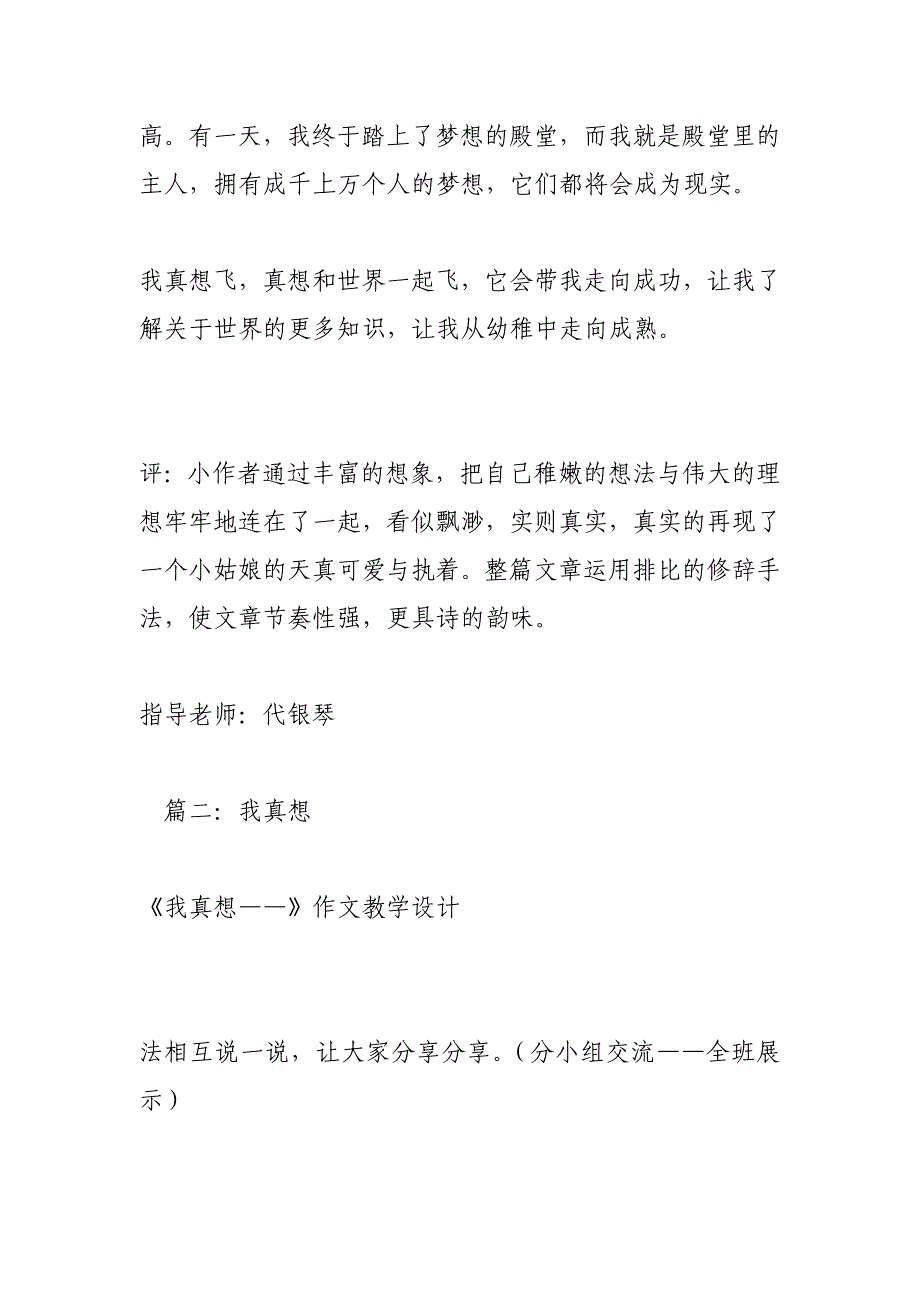 高。有一天，我终于踏上了梦想的殿堂，而我就是殿堂里的
主人，拥有成千上万个人的梦想，它们都将会成为现实。
我真想飞，真想和世界一起飞，它会带我走向成功，让我了
解关于世界的更多知识，让我从幼稚中走向成熟。
评：小作者通过丰富的想象，把自己稚嫩的想法与伟大的理
想牢牢地连在了一起，看似飘渺，实则真实，真实的再现了
一个小姑娘的天真可爱与执着。整篇文章运用排比的修辞手
法，使文章节奏性强，更具诗的韵味。
指导老师：代银琴
篇二：我真想
《我真想——》作文教学设计
法相互说一说，让大家分享分享。（分小组交流——全班展
示）